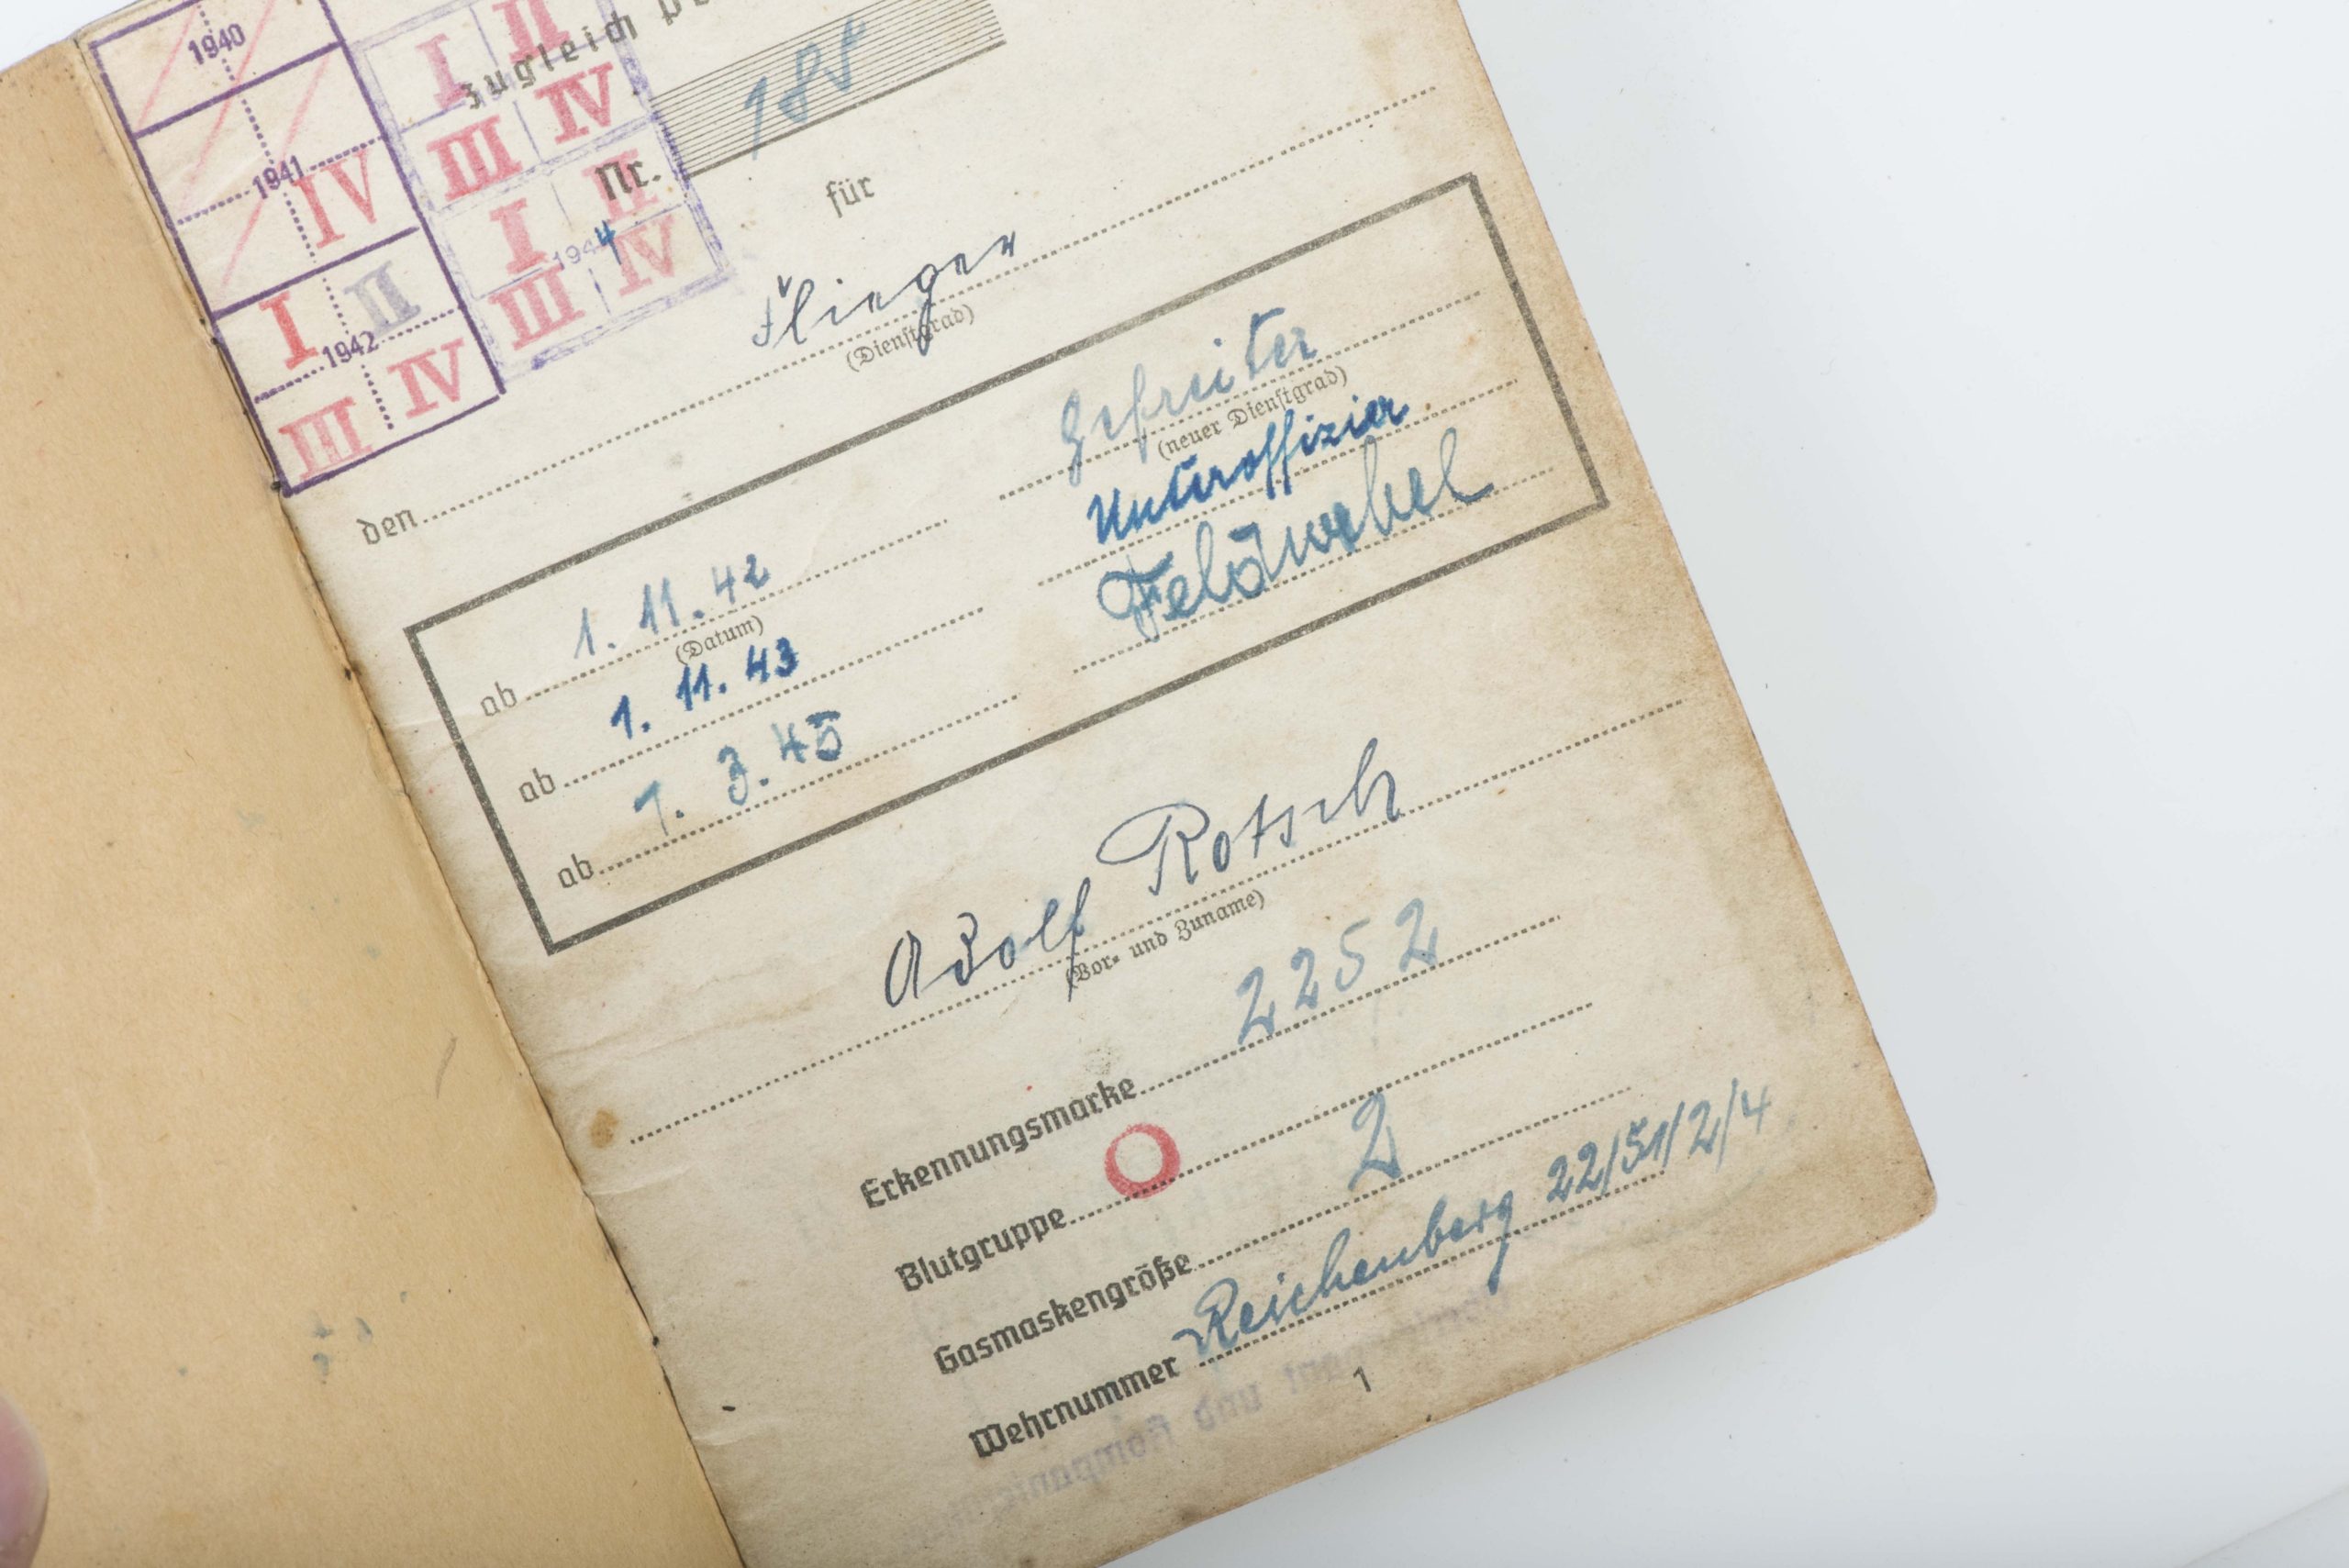 1940
1941
IV
I II
1942
III IV
I II
III IV
I II
1944
III IV
zugleich
Nr. 185
für
den Flieger
(Dienstgrad)
ab 1. 11. 42 Gefreiter
(Datum) (neuer Dienstgrad)
ab 1. 11. 43 Unteroffizier
ab 1. 3. 45 Feldwebel
Adolf Rotsch
(Vor- und Zuname)
Erkennungsmarke 2252
Blutgruppe O
Gasmaskengröße 2
Wehrnummer Reichenberg 22/51/2/4
1